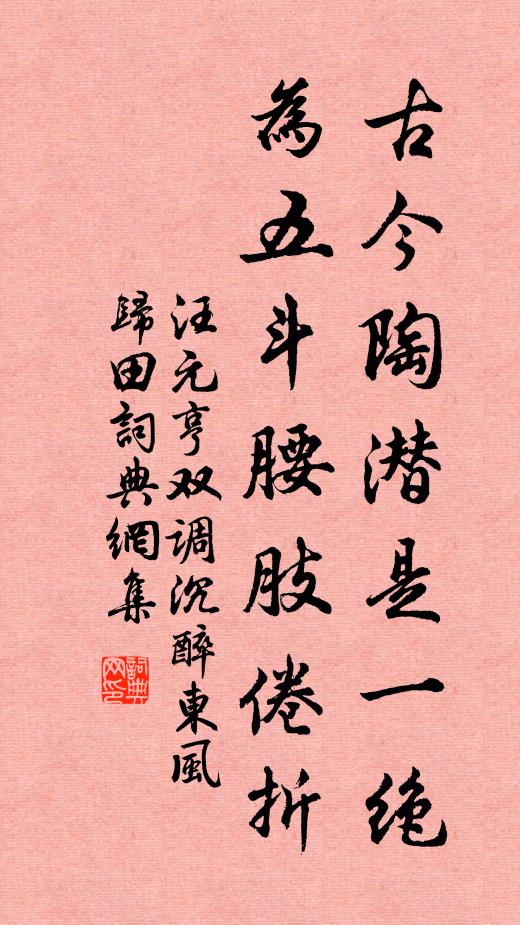 古今陶潜是一绝
為五斗腰肢倦折
汪元亨双调沉醉東風
歸田詞典網集
詞典網印